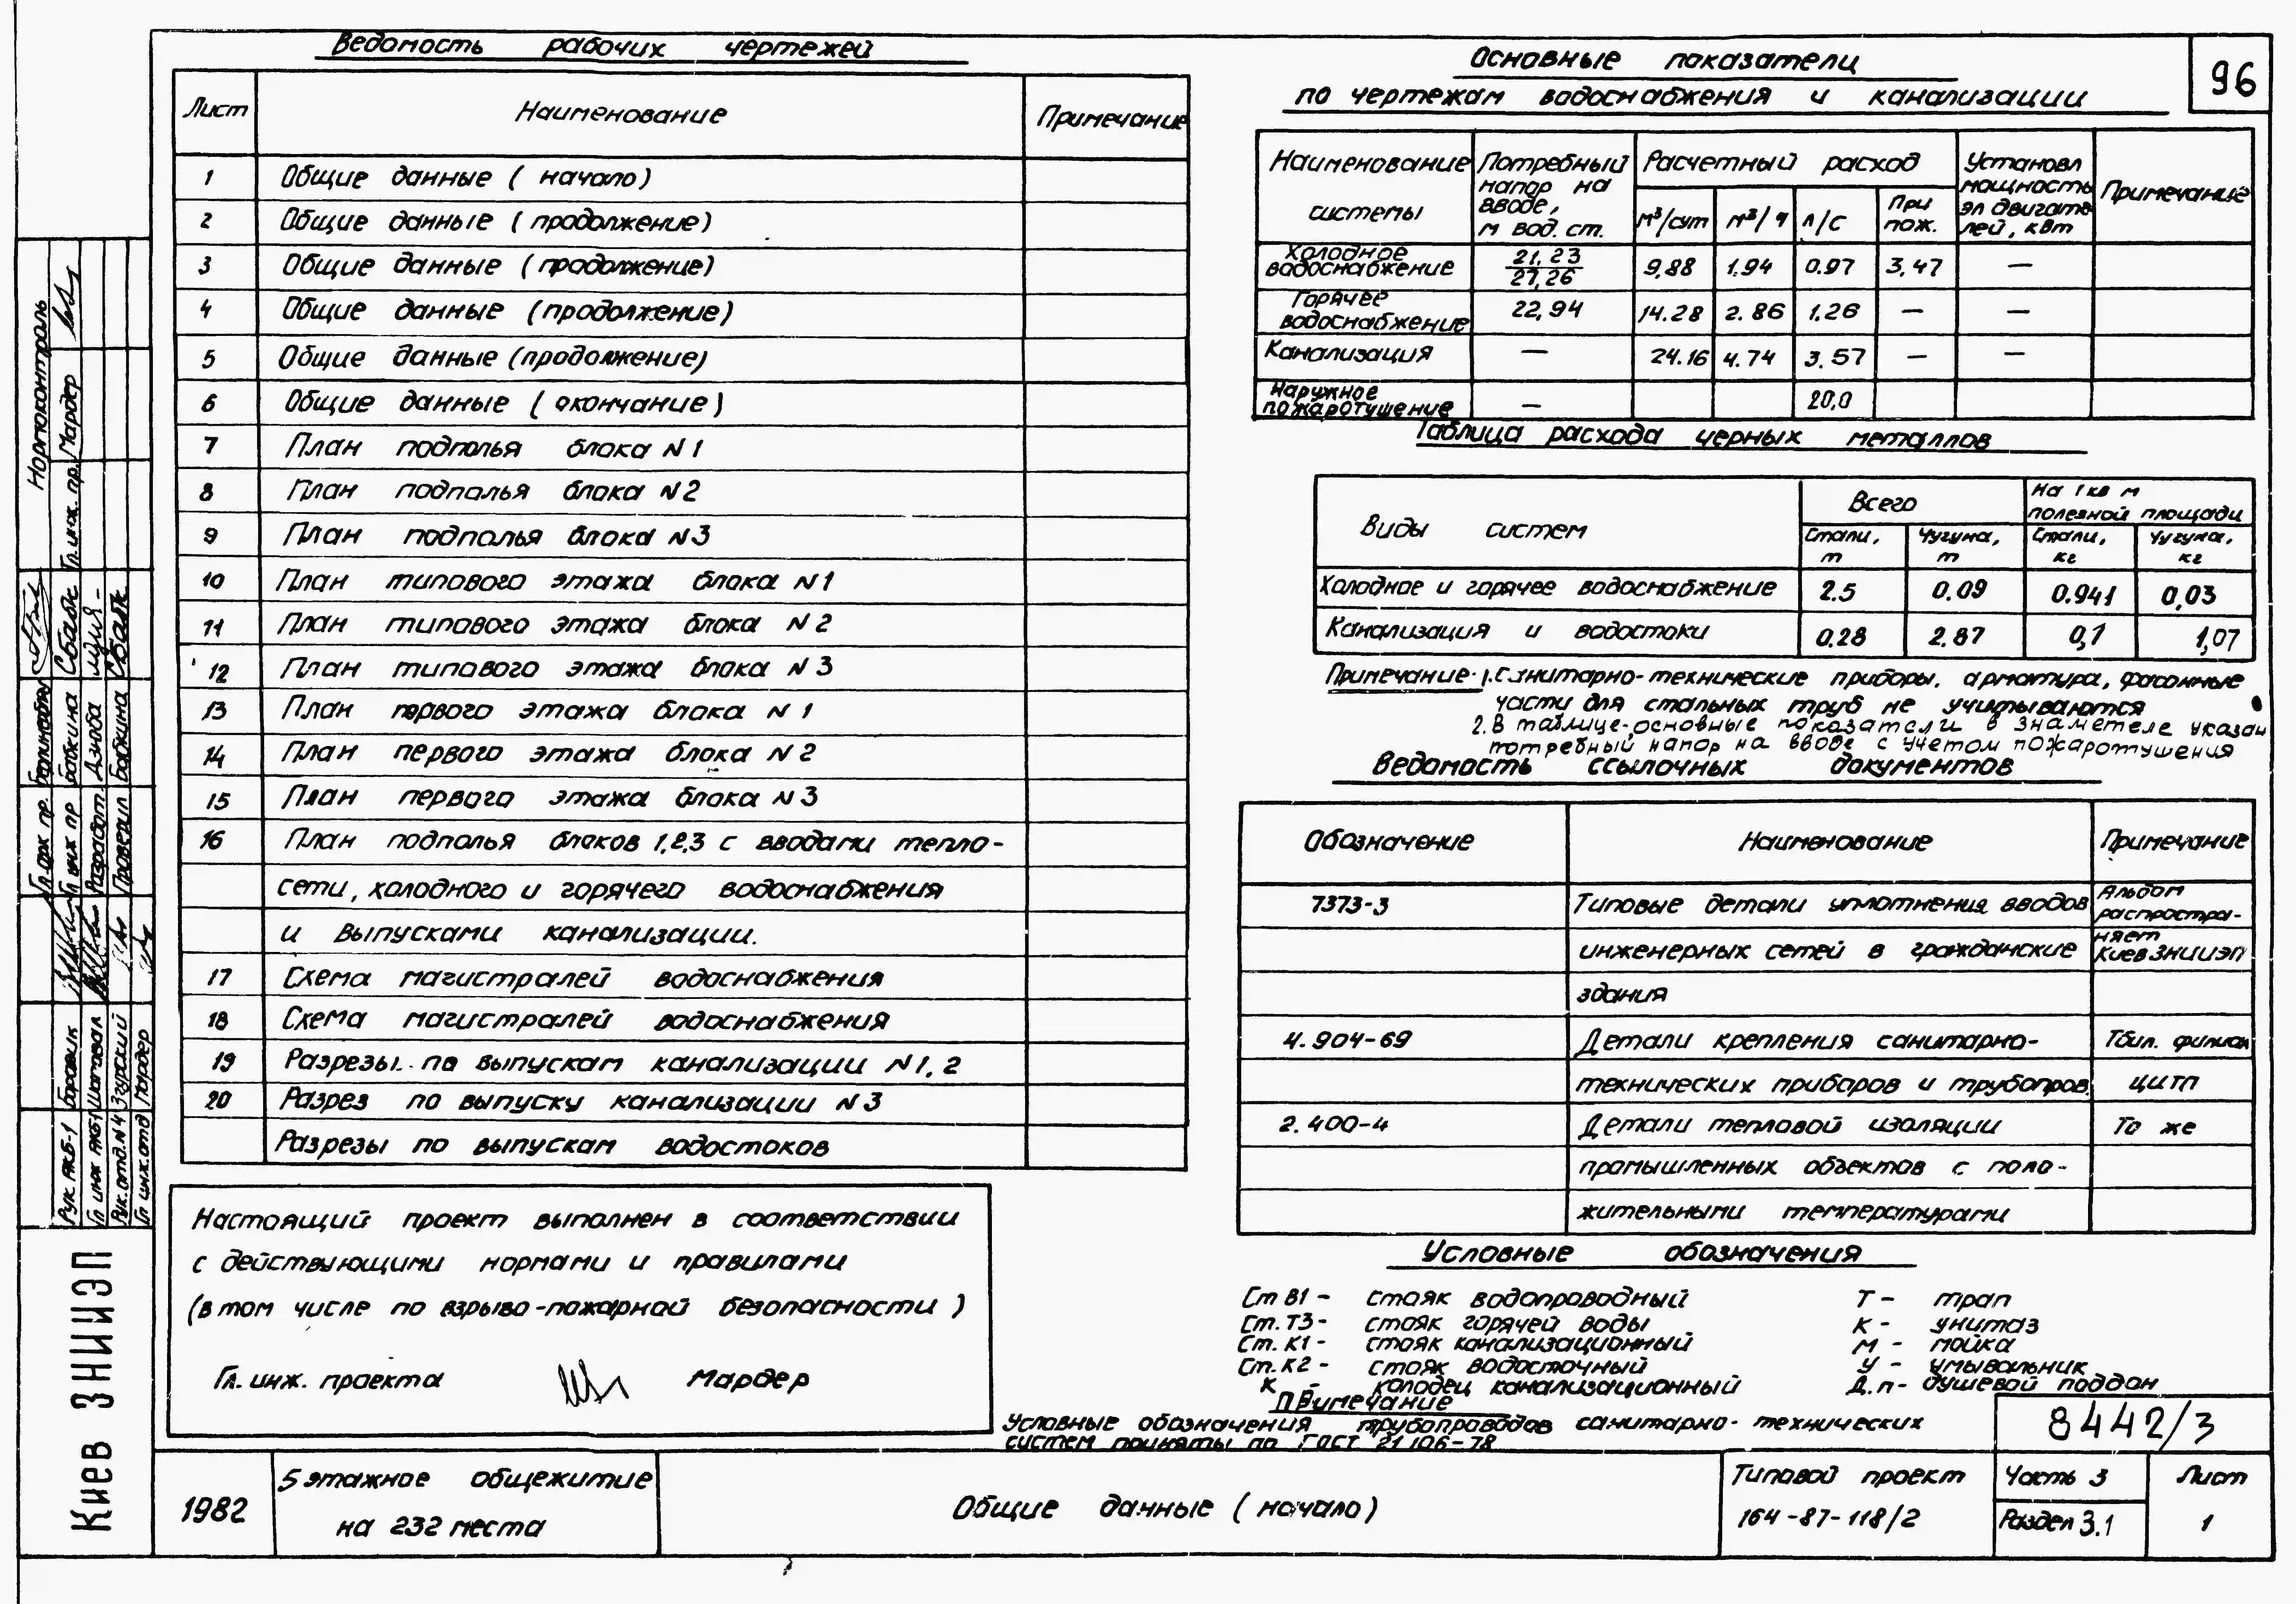 96
Ведомость рабочих чертежей
Лист Наименование Примечание
1 Общие данные ( начало )
2 Общие данные ( продолжение )
3 Общие данные ( продолжение )
4 Общие данные ( продолжение )
5 Общие данные ( продолжение )
6 Общие данные ( окончание )
7 План подполья блока N 1
8 План подполья блока N 2
9 План подполья блока N 3
10 План типового этажа блока N 1
11 План типового этажа блока N 2
12 План типового этажа блока N 3
13 План первого этажа блока N 1
14 План первого этажа блока N 2
15 План первого этажа блока N 3
16 План подполья блоков 1,2,3 с вводами тепло-
сети, холодного и горячего водоснабжения
и выпусками канализации.
17 Схема магистралей водоснабжения
18 Схема магистралей водоснабжения
19 Разрезы по выпускам канализации N 1, 2
20 Разрез по выпуску канализации N 3
Разрезы по выпускам водостоков
Настоящий проект выполнен в соответствии
с действующими нормами и правилами
(в том числе по взрыво-пожарной безопасности )
Гл. инж. проекта Мардер
Основные показатели
по чертежам водоснабжения и канализации
Наименование системы Потребный напор на вводе, м вод. ст. Расчетный расход Установл мощность эл двигате лей, квт Примечание
м³/сут м³/ч л/с При пож.
Холодное водоснабжение 21,23 27,26 9,88 1.94 0.97 3,47 —
Горячее водоснабжение 22,94 14.28 2.86 1.26 — —
Канализация — 24.16 4.74 3.57 — —
Наружное пожаротушение — 20,0
Таблица расхода черных металлов
Виды систем Всего На 1 кв м полезной площади
Стали, т Чугуна, т Стали, кг Чугуна, кг
Холодное и горячее водоснабжение 2.5 0.09 0.941 0,03
Канализация и водостоки 0.28 2.87 0,1 1,07
Примечание: 1. Санитарно-технические приборы, арматура, фасонные
части для стальных труб не учитываются
2. В таблице-основные показатели в знаметеле указан
потребный напор на вводе с учетом пожаротушения
Ведомость ссылочных документов
Обозначение Наименование Примечание
7373-3 Типовые детали уплотнения вводов Альбом распростра-
инженерных сетей в гражданские няет КиевЗНИИЭП
здания
4.904-69 Детали крепления санитарно- Тбил. филиал
технических приборов и трубопров. ЦИТП
2.400-4 Детали тепловой изоляции То же
промышленных объектов с поло-
жительными температурами
Условные обозначения
Ст В1 - стояк водопроводный
Ст. Т3 - стояк горячей воды
Ст. К1 - стояк канализационный
Ст. К2 - стояк водосточный
К - колодец канализационный
Т - трап
К - унитаз
М - мойка
У - умывальник
Д.п - душевой поддон
Примечание
Условные обозначения трубопроводов санитарно-технических
систем приняты по ГОСТ 21.106-78
8442/3
1982
5 этажное общежитие
на 232 места
Общие данные ( начало )
Типовой проект
164-87-118/2
Часть 3
Раздел 3.1
Лист
1
Киев ЗНИИЭП
Нормоконтроль
Гл. инж. пр. Мардер
Гл. арх пр.
Гл инж пр Бабкина
Разработ. Дзюба
Проверил Бабкина
Рук. АКБ-1 Боровик
Гл инж АКБ-1 Шаповал
Рук. отд. N4 Згурский
Гл инж. отд Мардер